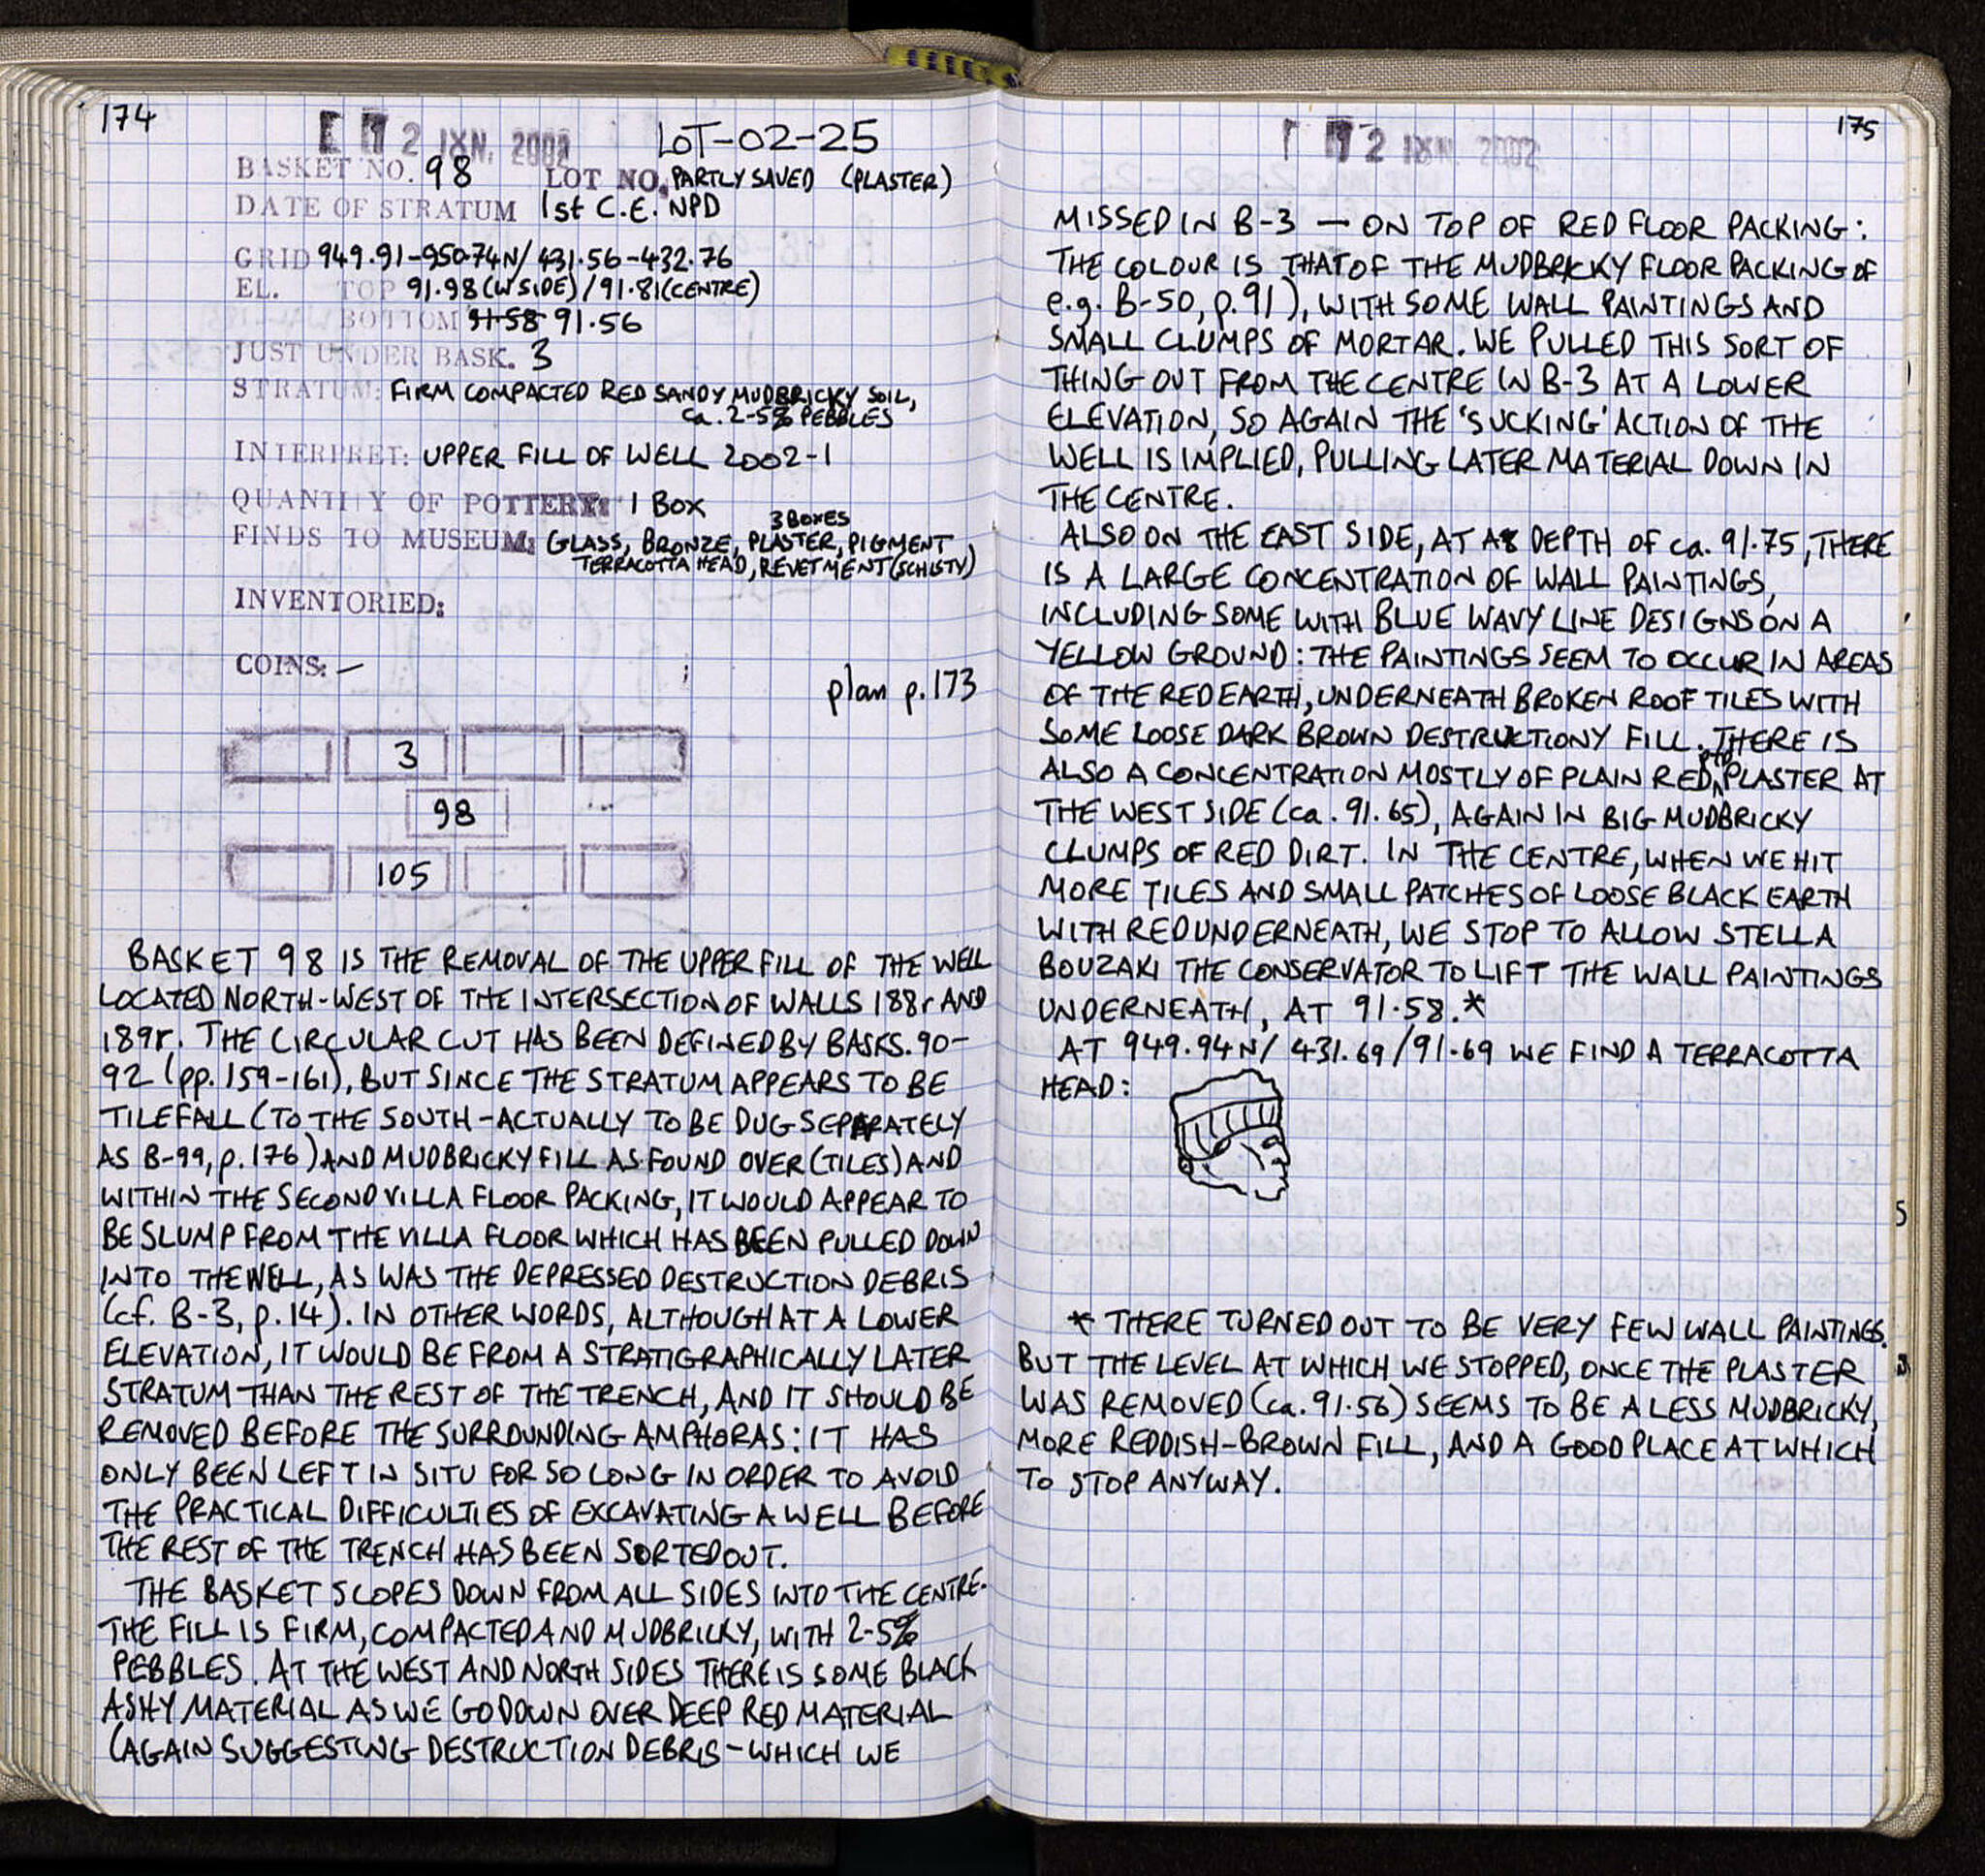 174
12 ΙΧΝ. 2002
LOT-02-25
BASKET NO. 98 LOT NO. PARTLY SAVED (PLASTER)
DATE OF STRATUM 1st C.E. NPD
GRID 949.91-950.74N/431.56-432.76
EL. TOP 91.98(W SIDE)/91.81(CENTRE)
BOTTOM 91.58 91.56
JUST UNDER BASK. 3
STRATUM: FIRM COMPACTED RED SANDY MUDBRICKY SOIL,
ca. 2-5% PEBBLES
INTERPRET: UPPER FILL OF WELL 2002-1
QUANTITY OF POTTERY: 1 BOX
3 BOXES
FINDS TO MUSEUM: GLASS, BRONZE, PLASTER, PIGMENT,
TERRACOTTA HEAD, REVETMENT (SCHISTY)
INVENTORIED:
COINS: –
plan p.173
3
98
105
BASKET 98 IS THE REMOVAL OF THE UPPER FILL OF THE WELL
LOCATED NORTH-WEST OF THE INTERSECTION OF WALLS 188r AND
189r. THE CIRCULAR CUT HAS BEEN DEFINED BY BASKS. 90-
92 (pp. 159-161), BUT SINCE THE STRATUM APPEARS TO BE
TILEFALL (TO THE SOUTH - ACTUALLY TO BE DUG SEPARATELY
AS B-99, p. 176) AND MUDBRICKY FILL AS FOUND OVER (TILES) AND
WITHIN THE SECOND VILLA FLOOR PACKING, IT WOULD APPEAR TO
BE SLUMP FROM THE VILLA FLOOR WHICH HAS BEEN PULLED DOWN
INTO THE WELL, AS WAS THE DEPRESSED DESTRUCTION DEBRIS
(cf. B-3, p. 14). IN OTHER WORDS, ALTHOUGH AT A LOWER
ELEVATION, IT WOULD BE FROM A STRATIGRAPHICALLY LATER
STRATUM THAN THE REST OF THE TRENCH, AND IT SHOULD BE
REMOVED BEFORE THE SURROUNDING AMPHORAS: IT HAS
ONLY BEEN LEFT IN SITU FOR SO LONG IN ORDER TO AVOID
THE PRACTICAL DIFFICULTIES OF EXCAVATING A WELL BEFORE
THE REST OF THE TRENCH HAS BEEN SORTED OUT.
THE BASKET SLOPES DOWN FROM ALL SIDES INTO THE CENTRE.
THE FILL IS FIRM, COMPACTED AND MUDBRICKY, WITH 2-5%
PEBBLES. AT THE WEST AND NORTH SIDES THERE IS SOME BLACK
ASHY MATERIAL AS WE GO DOWN OVER DEEP RED MATERIAL
(AGAIN SUGGESTING DESTRUCTION DEBRIS - WHICH WE
175
12 ΙΧΝ. 2002
MISSED IN B-3 — ON TOP OF RED FLOOR PACKING:
THE COLOUR IS THAT OF THE MUDBRICKY FLOOR PACKING OF
e.g. B-50, p. 91), WITH SOME WALL PAINTINGS AND
SMALL CLUMPS OF MORTAR. WE PULLED THIS SORT OF
THING OUT FROM THE CENTRE IN B-3 AT A LOWER
ELEVATION, SO AGAIN THE 'SUCKING' ACTION OF THE
WELL IS IMPLIED, PULLING LATER MATERIAL DOWN IN
THE CENTRE.
ALSO ON THE EAST SIDE, AT A DEPTH OF ca. 91.75, THERE
IS A LARGE CONCENTRATION OF WALL PAINTINGS,
INCLUDING SOME WITH BLUE WAVY LINE DESIGNS ON A
YELLOW GROUND: THE PAINTINGS SEEM TO OCCUR IN AREAS
OF THE RED EARTH, UNDERNEATH BROKEN ROOF TILES WITH
SOME LOOSE DARK BROWN DESTRUCTIONY FILL. THERE IS
ALSO A CONCENTRATION MOSTLY OF PLAIN RED PTD PLASTER AT
THE WEST SIDE (ca. 91.65), AGAIN IN BIG MUDBRICKY
CLUMPS OF RED DIRT. IN THE CENTRE, WHEN WE HIT
MORE TILES AND SMALL PATCHES OF LOOSE BLACK EARTH
WITH RED UNDERNEATH, WE STOP TO ALLOW STELLA
BOUZAKI THE CONSERVATOR TO LIFT THE WALL PAINTINGS
UNDERNEATH, AT 91.58.*
AT 949.94N/431.69/91.69 WE FIND A TERRACOTTA
HEAD:
* THERE TURNED OUT TO BE VERY FEW WALL PAINTINGS.
BUT THE LEVEL AT WHICH WE STOPPED, ONCE THE PLASTER
WAS REMOVED (ca. 91.56) SEEMS TO BE A LESS MUDBRICKY,
MORE REDDISH-BROWN FILL, AND A GOOD PLACE AT WHICH
TO STOP ANYWAY.